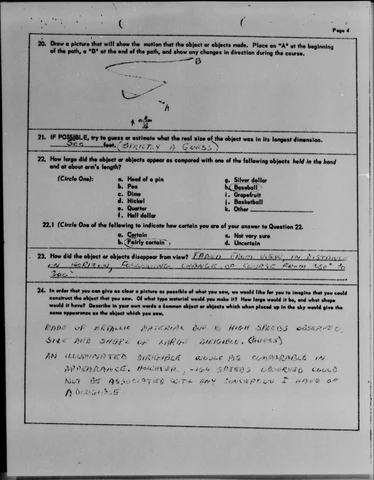 Page 4
20. Draw a picture that will show the motion that the object or objects made. Place an "A" at the beginning
of the path, a "B" at the end of the path, and show any changes in direction during the course.
B
A
21. IF POSSIBLE, try to guess or estimate what the real size of the object was in its longest dimension.
500 feet. (STRICTLY A GUESS)
22. How large did the object or objects appear as compared with one of the following objects held in the hand
and at about arm's length?
(Circle One):
a. Head of a pin
b. Pea
c. Dime
d. Nickel
e. Quarter
f. Half dollar
g. Silver dollar
h. Baseball
i. Grapefruit
j. Basketball
k. Other
22.1 (Circle One of the following to indicate how certain you are of your answer to Question 22.
a. Certain
b. Fairly certain
c. Not very sure
d. Uncertain
23. How did the object or objects disappear from view? FADED FROM VIEW, IN DISTANCE
ON HORIZON, FOLLOWING CHANGE OF COURSE FROM 350° TO
24. In order that you can give as clear a picture as possible of what you saw, we would like for you to imagine that you could
construct the object that you saw. Of what type material would you make it? How large would it be, and what shape
would it have? Describe in your own words a common object or objects which when placed up in the sky would give the
same appearance as the object which you saw.
MADE OF METALLIC MATERIAL DUE TO HIGH SPEEDS OBSERVED.
SIZE AND SHAPE OF LARGE DIRIGIBLE. (GUESS)
AN ILLUMINATED DIRIGIBLE WOULD BE COMPARABLE IN
APPEARANCE. HOWEVER, THE SPEEDS OBSERVED COULD
NOT BE ASSOCIATED WITH ANY CONCEPTION I HAVE OF
A DIRIGIBLE